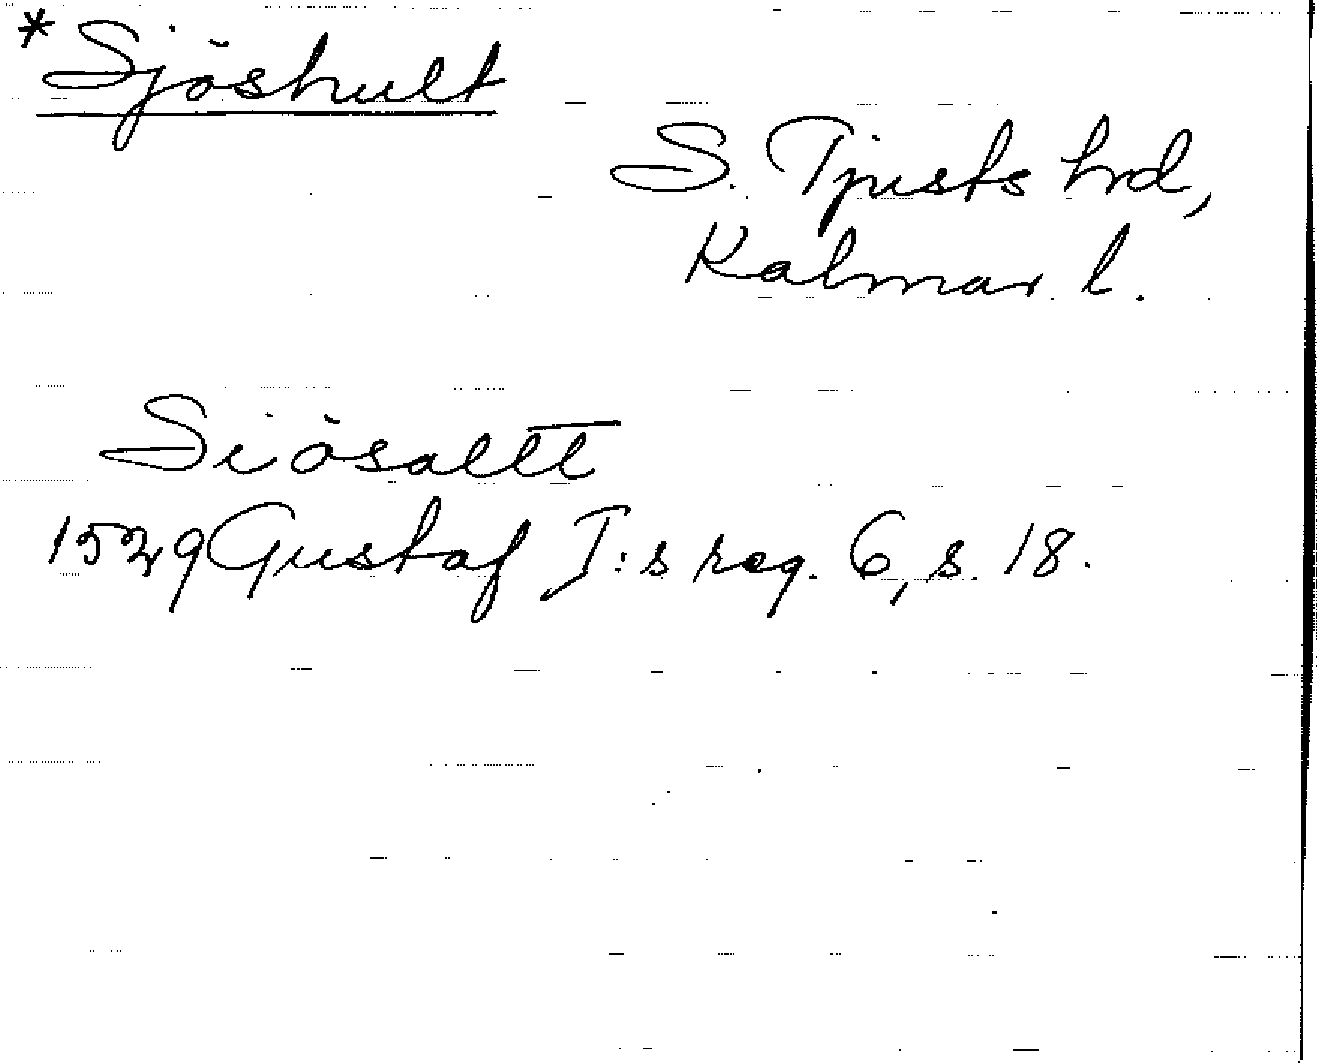 *Sjöshult
S. Tjusts hrd,
Kalmar l.
Siösaltt
1529 Gustaf I:s reg. 6, s. 18.